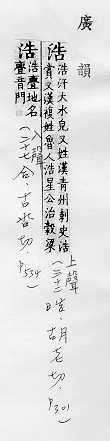 廣韻
浩 浩汗大水皃又姓漢青州刺史浩
賞又漢複姓魯人浩星公治穀梁
上聲(三十二晧·胡老切·P301)
浩 浩亹地名
亹音門
入聲(二十七合·古沓切·P534)